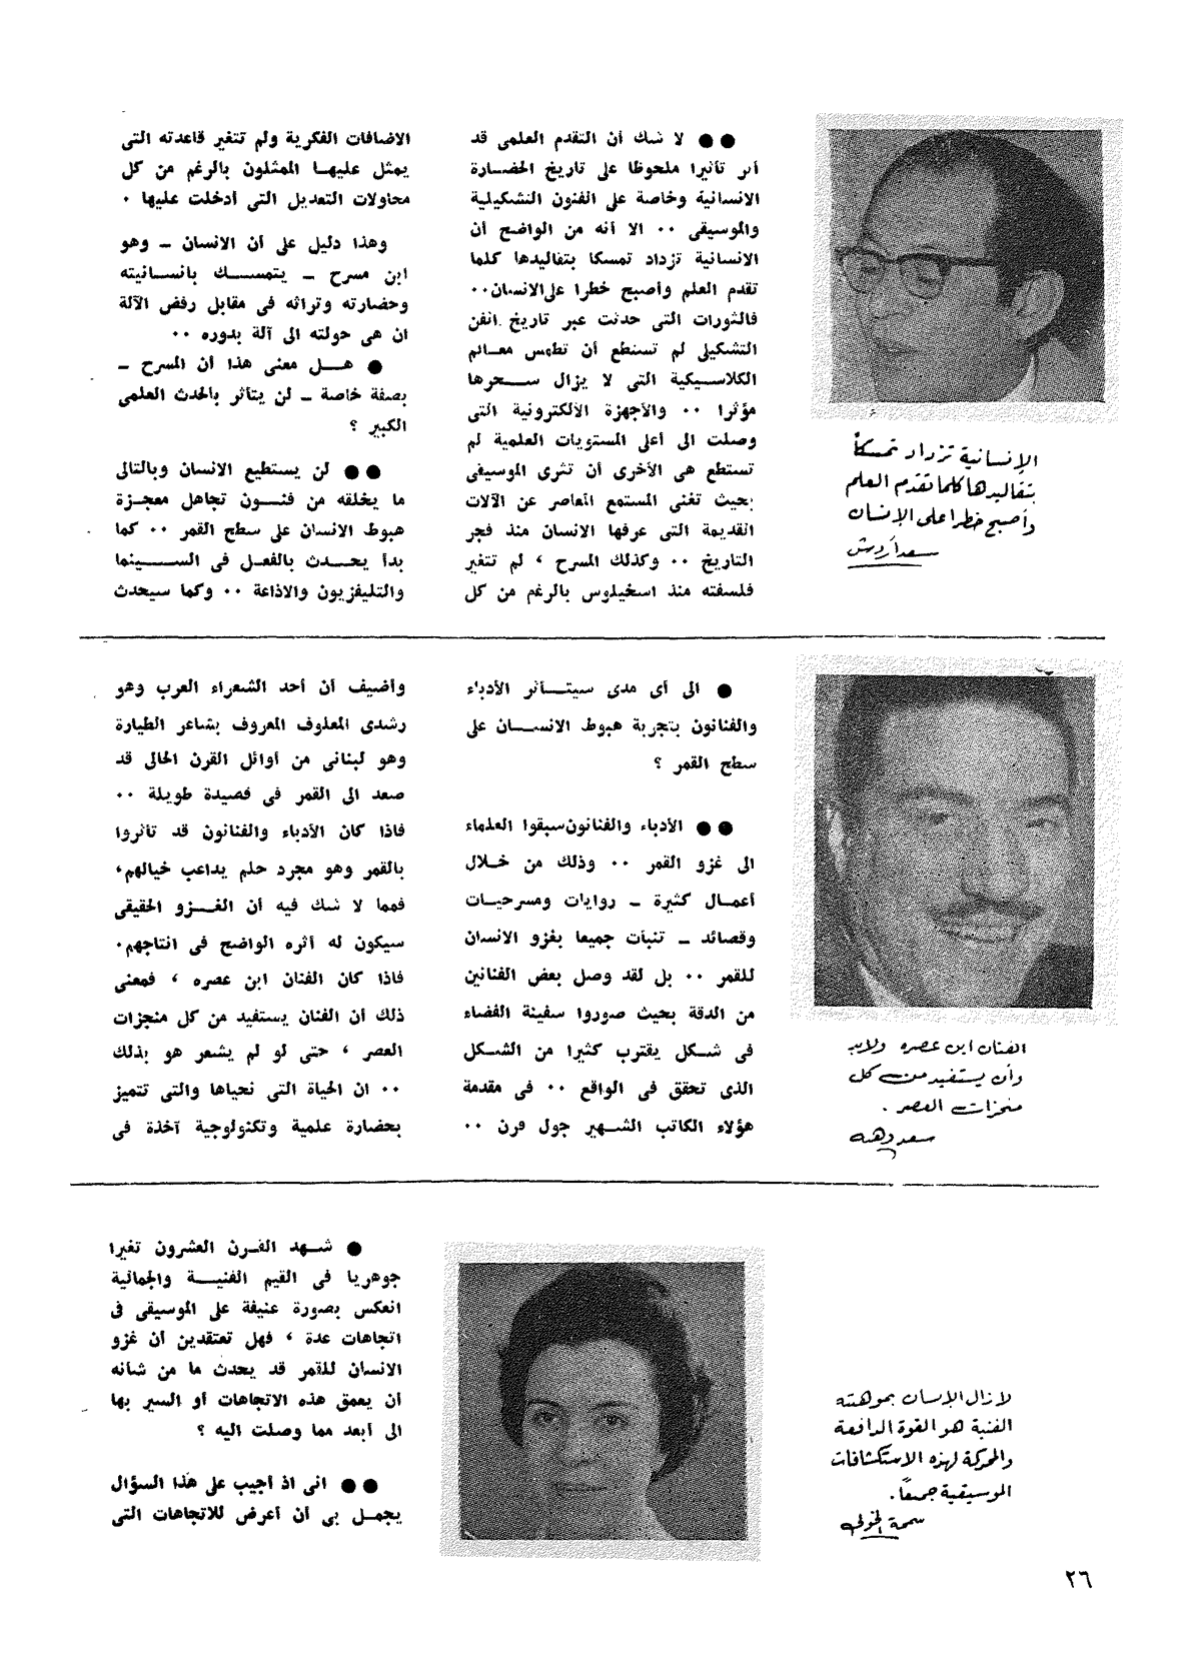 الإنسانية تزداد تمسكاً
بتقاليدها كلما تقدم العلم
وأصبح خطرا على الإنسان
سعد أردش
●● لا شك أن التقدم العلمى قد
أثر تأثيرا ملحوظا على تاريخ الحضارة
الانسانية وخاصة على الفنون التشكيلية
والموسيقى ٠٠ الا أنه من الواضح أن
الانسانية تزداد تمسكا بتقاليدها كلما
تقدم العلم وأصبح خطرا على الانسان٠٠
فالثورات التى حدثت عبر تاريخ الفن
التشكيلى لم تستطع أن تطمس معالم
الكلاسيكية التى لا يزال سحرها
مؤثرا ٠٠ والأجهزة الألكترونية التى
وصلت الى أعلى المستويات العلمية لم
تستطع هى الأخرى أن تثرى الموسيقى
بحيث تغنى المستمع المعاصر عن الآلات
القديمة التى عرفها الانسان منذ فجر
التاريخ ٠٠ وكذلك المسرح ، لم تتغير
فلسفته منذ اسخيلوس بالرغم من كل
الاضافات الفكرية ولم تتغير قاعدته التى
يمثل عليها الممثلون بالرغم من كل
محاولات التعديل التى أدخلت عليها ٠
وهذا دليل على أن الانسان ـ وهو
ابن مسرح ـ يتمسك بانسانيته
وحضارته وتراثه فى مقابل رفض الآلة
ان هى حولته الى آلة بدوره ٠٠
● هل معنى هذا أن المسرح ـ
بصفة خاصة ـ لن يتأثر بالحدث العلمى
الكبير ؟
●● لن يستطيع الانسان وبالتالى
ما يخلقه من فنون تجاهل معجزة
هبوط الانسان على سطح القمر ٠٠ كما
بدأ يحدث بالفعل فى السينما
والتليفزيون والاذاعة ٠٠ وكما سيحدث
الفنان ابن عصره ولابد
وأن يستفيد من كل
منجزات العصر .
سعد وهبه
● الى أى مدى سيتأثر الأدباء
والفنانون بتجربة هبوط الانسان على
سطح القمر ؟
●● الأدباء والفنانون سبقوا العلماء
الى غزو القمر ٠٠ وذلك من خلال
أعمال كثيرة ـ روايات ومسرحيات
وقصائد ـ تنبأت جميعا بغزو الانسان
للقمر ٠٠ بل لقد وصل بعض الفنانين
من الدقة بحيث صوروا سفينة الفضاء
فى شكل يقترب كثيرا من الشكل
الذى تحقق فى الواقع ٠٠ فى مقدمة
هؤلاء الكاتب الشهير جول فرن ٠٠
وأضيف أن أحد الشعراء العرب وهو
رشدى المعلوف المعروف بشاعر الطيارة
وهو لبنانى من أوائل القرن الحالى قد
صعد الى القمر فى قصيدة طويلة ٠٠
فاذا كان الأدباء والفنانون قد تأثروا
بالقمر وهو مجرد حلم يداعب خيالهم،
فمما لا شك فيه أن الغزو الحقيقى
سيكون له أثره الواضح فى انتاجهم٠
فاذا كان الفنان ابن عصره ، فمعنى
ذلك أن الفنان يستفيد من كل منجزات
العصر ، حتى لو لم يشعر هو بذلك
٠٠ ان الحياة التى نحياها والتى تتميز
بحضارة علمية وتكنولوجية آخذة فى
لا زال الإنسان بموهبته
الفنية هو القوة الدافعة
والمحركة لهذه الاستكشافات
الموسيقية جميعاً.
سمحة الخولى
● شهد القرن العشرون تغيرا
جوهريا فى القيم الفنية والجمالية
انعكس بصورة عنيفة على الموسيقى فى
اتجاهات عدة ، فهل تعتقدين أن غزو
الانسان للقمر قد يحدث ما من شأنه
أن يعمق هذه الاتجاهات أو السير بها
الى أبعد مما وصلت اليه ؟
●● انى اذ أجيب على هذا السؤال
يجمل بى أن أعرض للاتجاهات التى
٢٦